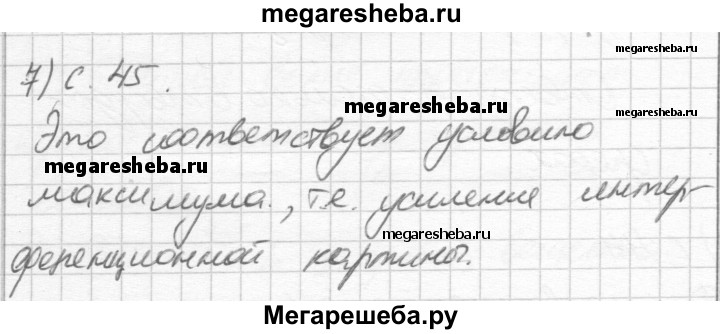 megaresheba.ru
7) с. 45.
megaresheba.ru
megaresheba.ru
Это соответствует условию
megaresheba.ru
максимума., т.е. усиления интер-
megaresheba.ru
ференционной картины.
Мегарешеба.ру